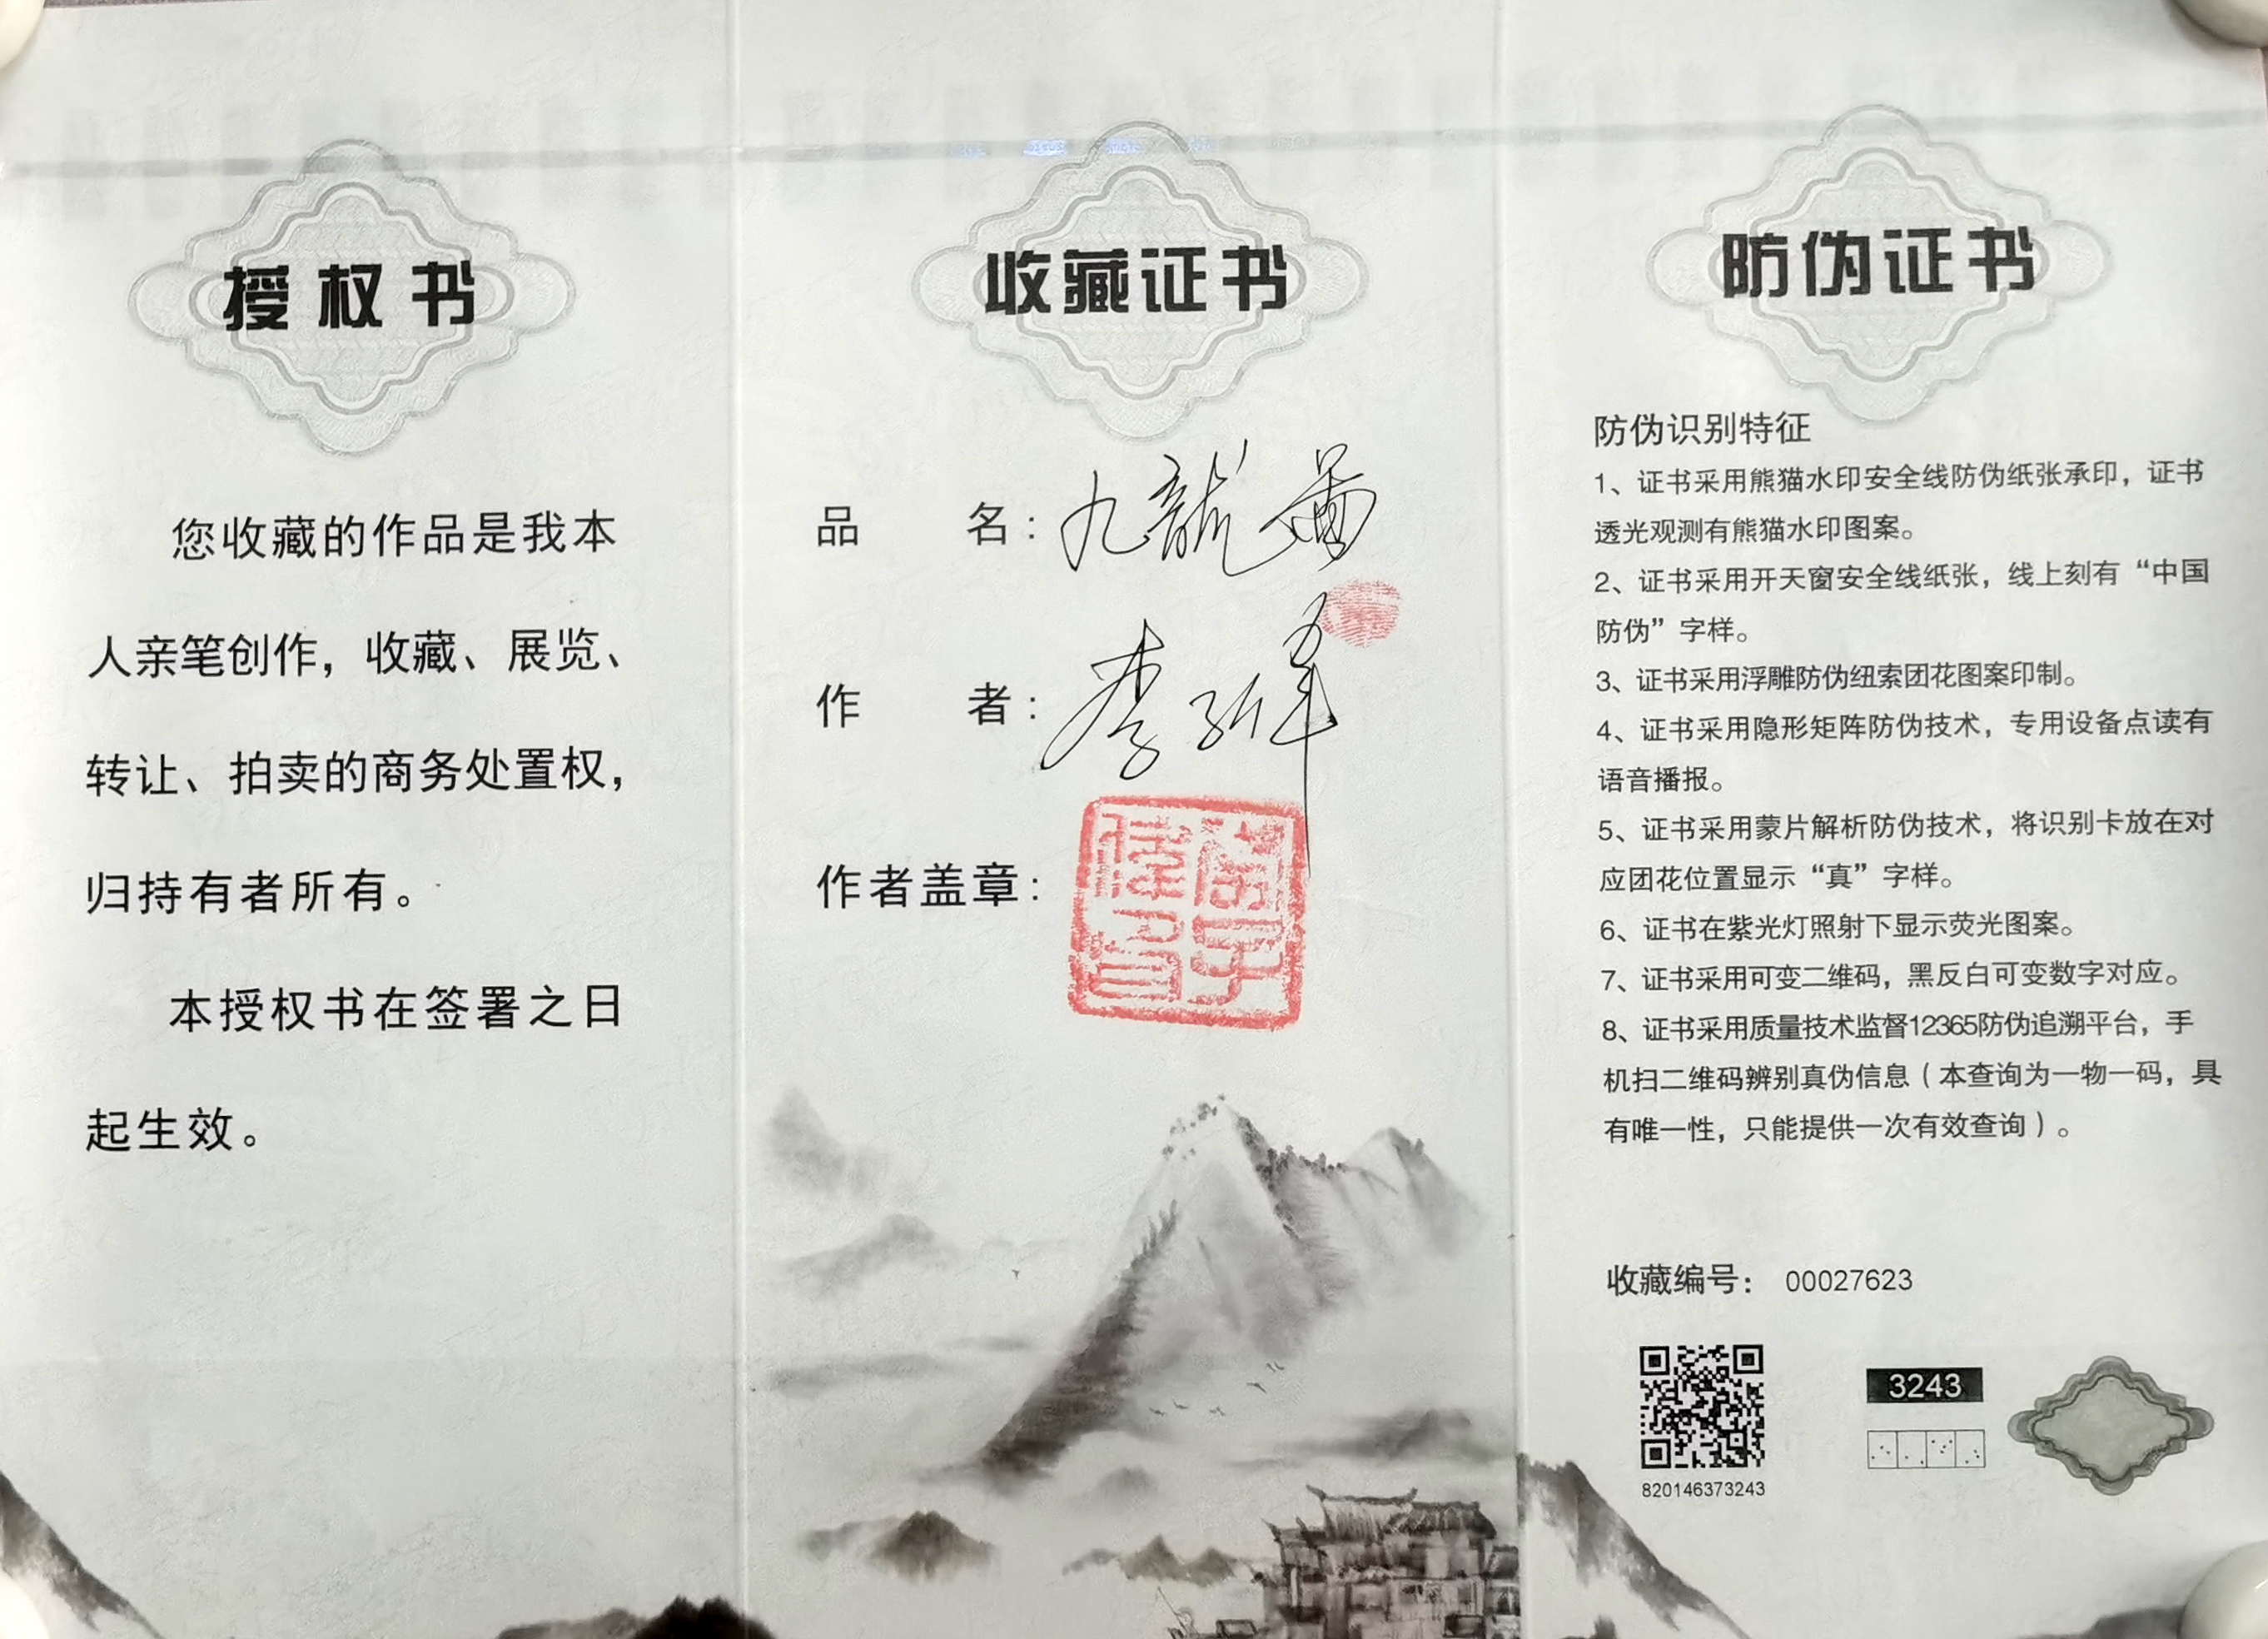 授权书
您收藏的作品是我本
人亲笔创作，收藏、展览、
转让、拍卖的商务处置权，
归持有者所有。
本授权书在签署之日
起生效。
收藏证书
品名：九龍圖
作者：李
作者盖章：
防伪证书
防伪识别特征
1、证书采用熊猫水印安全线防伪纸张承印，证书
透光观测有熊猫水印图案。
2、证书采用开天窗安全线纸张，线上刻有“中国
防伪”字样。
3、证书采用浮雕防伪纽索团花图案印制。
4、证书采用隐形矩阵防伪技术，专用设备点读有
语音播报。
5、证书采用蒙片解析防伪技术，将识别卡放在对
应团花位置显示“真”字样。
6、证书在紫光灯照射下显示荧光图案。
7、证书采用可变二维码，黑反白可变数字对应。
8、证书采用质量技术监督12365防伪追溯平台，手
机扫二维码辨别真伪信息（本查询为一物一码，具
有唯一性，只能提供一次有效查询）。
收藏编号：00027623
3243
820146373243